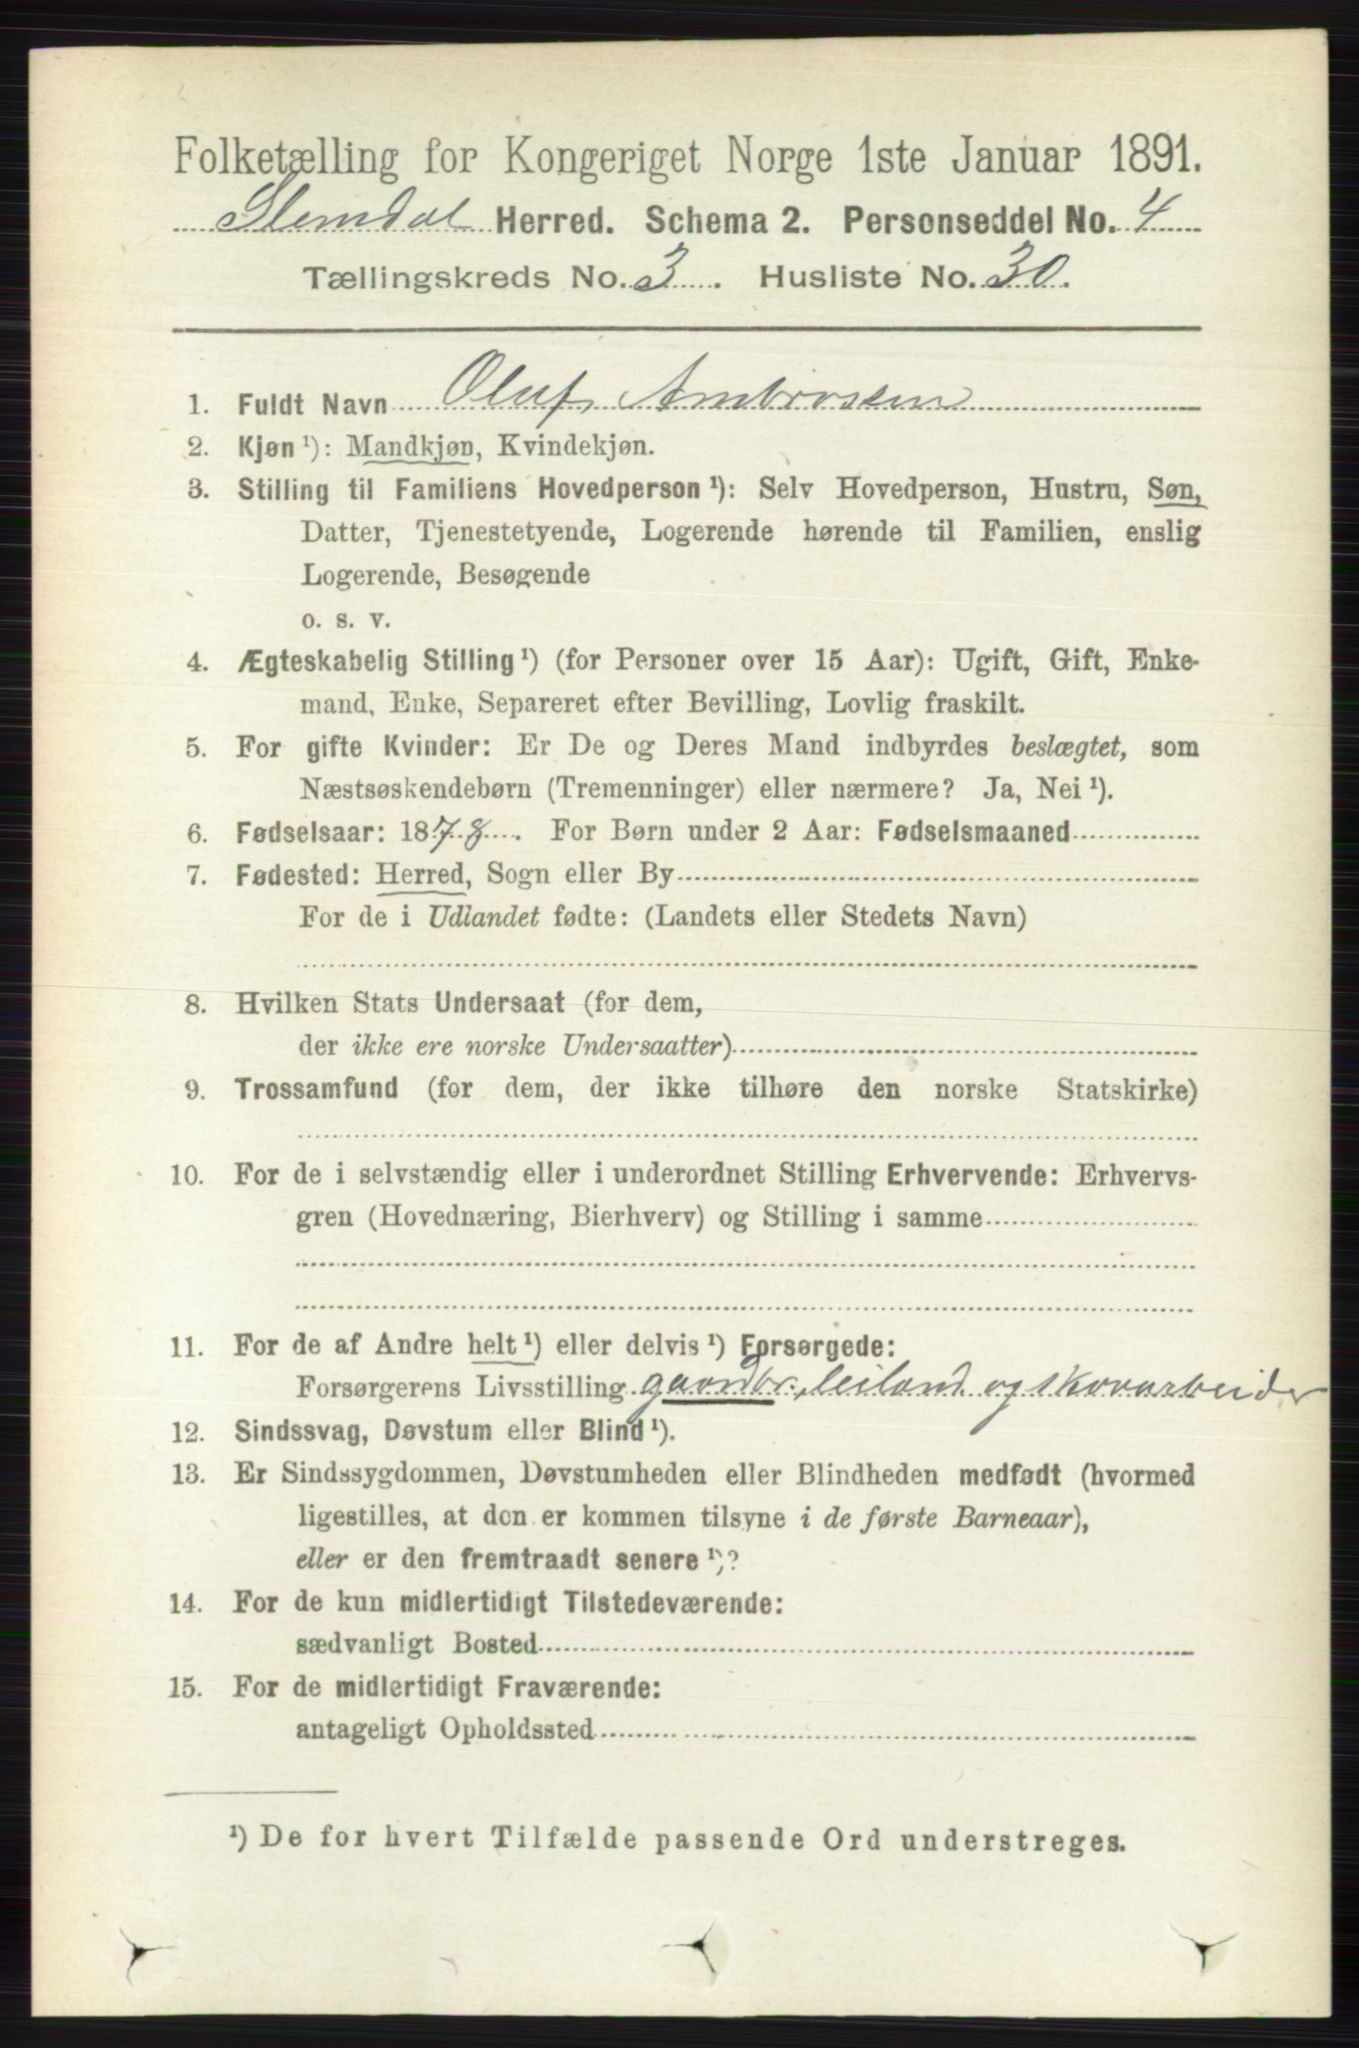 Folketælling for Kongeriget Norge 1ste Januar 1891.
Slemdal Herred. Schema 2. Personseddel No. 4
Tællingskreds No. 3. Husliste No. 30.
1. Fuldt Navn Oluf Ambrosen
2. Kjøn ¹): Mandkjøn, Kvindekjøn.
3. Stilling til Familiens Hovedperson ¹): Selv Hovedperson, Hustru, Søn,
Datter, Tjenestetyende, Logerende hørende til Familien, enslig
Logerende, Besøgende
o. s. v.
4. Ægteskabelig Stilling ¹) (for Personer over 15 Aar): Ugift, Gift, Enke-
mand, Enke, Separeret efter Bevilling, Lovlig fraskilt.
5. For gifte Kvinder: Er De og Deres Mand indbyrdes beslægtet, som
Næstsøskendebørn (Tremenninger) eller nærmere? Ja, Nei ¹).
6. Fødselsaar: 1878. For Børn under 2 Aar: Fødselsmaaned
7. Fødested: Herred, Sogn eller By
For de i Udlandet fødte: (Landets eller Stedets Navn)
8. Hvilken Stats Undersaat (for dem,
der ikke ere norske Undersaatter)
9. Trossamfund (for dem, der ikke tilhøre den norske Statskirke)
10. For de i selvstændig eller i underordnet Stilling Erhvervende: Erhvervs-
gren (Hovednæring, Bierhverv) og Stilling i samme
11. For de af Andre helt ¹) eller delvis ¹) Forsørgede:
Forsørgerens Livsstilling gaardbr. leiland og skovarbeider
12. Sindssvag, Døvstum eller Blind ¹).
13. Er Sindssygdommen, Døvstumheden eller Blindheden medfødt (hvormed
ligestilles, at den er kommen tilsyne i de første Barneaar),
eller er den fremtraadt senere ¹)?
14. For de kun midlertidigt Tilstedeværende:
sædvanligt Bosted
15. For de midlertidigt Fraværende:
antageligt Opholdssted
¹) De for hvert Tilfælde passende Ord understreges.